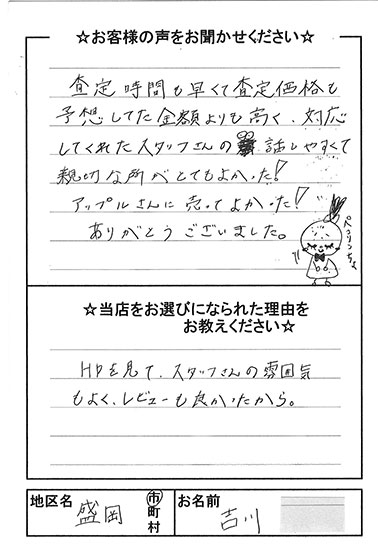 ☆お客様の声をお聞かせください☆
査定時間も早くて査定価格も
予想してた金額よりも高く、対応
してくれたスタッフさんの話しやすくて
親切な所がとてもよかった!
アップルさんに売ってよかった!
ありがとうございました。
ぺろりんちょ
☆当店をお選びになられた理由を
お教えください☆
HPを見て、スタッフさんの雰囲気
もよく、レビューも良かったから。
地区名 盛岡 市町村 お名前 吉川